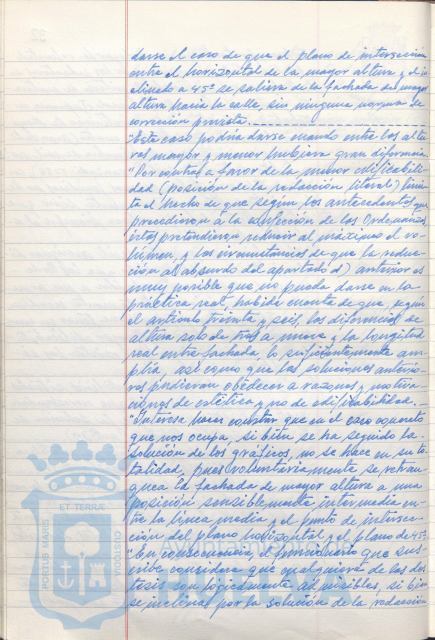 darse el caso de que el plano de intersección
entre el horizontal de la mayor altura y el in
clinado a 45º se saliera de la fachada del mayor
altura hacia la calle, sin ninguna norma de
corrección prevista.
"Este caso podría darse cuando entre las altu
ras mayor y menor hubiera gran diferencia.
"Por contra, a favor de la menor edificabili-
dad (posición de la redacción literal) mili
ta el hecho de que según los antecedentes que
precedieron a la confección de las Ordenanzas,
éstas pretendieron reducir al máximo el vo-
lúmen, y las circunstancias de que la reduc-
ción al absurdo del apartado d) anterior es
muy posible que no pueda darse en la
práctica real habida cuenta de que, según
el artículo treinta y seis, las diferencias de
altura solo de tres a nueve y la longitud
real entre fachada, lo suficientemente am-
plia, así como que las soluciones anterio-
res pudieran obedecer a razones y motiva-
ciones de estética y no de edificabilidad.-
"Interesa hacer constar que en el caso concreto
que nos ocupa, si bien se ha seguido la
solución de los gráficos, no se hace en su to-
talidad, pues voluntariamente se retran-
quea la fachada de mayor altura a una
posición sensiblemente intermedia en-
tre la línea media y el punto de intersec-
ción del plano horizontal y el plano de 45º
"En consecuencia, el funcionario que sus
cribe considera que cualquiera de las dos
tesis son lógicamente admisibles, si bien
se inclina por la solución de la redacción
PORTUS MARIS
ET TERRÆ
CUSTODIA
HUELVA